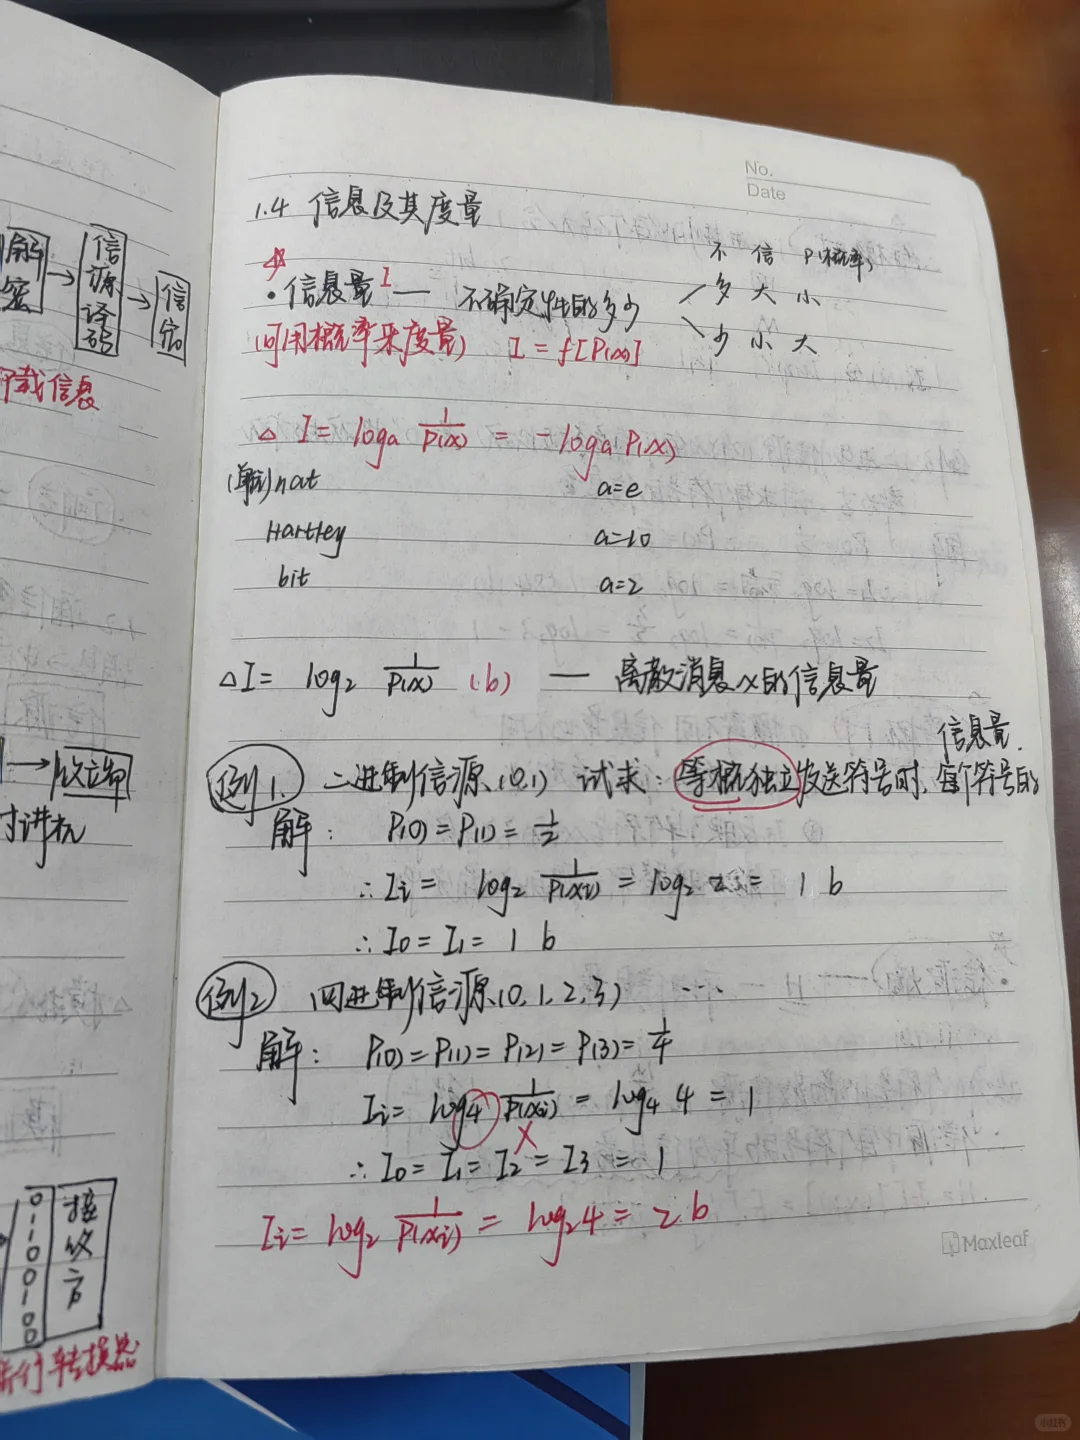 解密 → 信源译码 → 信宿
载信息
→ 收立即
对讲机
01100100 接收方
并行转换器
No.
Date
1.4 信息及其度量
不 信 P(概率)
·信息量 I — 不确定性的多少
多 大 小
少 小 大
(可用概率来度量) I = f[P(x)]
△ I = loga 1/P(x) = -loga P(x)
(单位) nat a=e
Hartley a=10
bit a=2
△I = log₂ 1/P(x) (b) — 离散消息x的信息量
例1. 二进制信源(0,1) 试求: 等概独立发送符号时, 每个符号的信息量.
解: P(0)=P(1)=1/2
∴ Ii = log₂ 1/P(xi) = log₂ 2 = 1 b
∴ I0 = I1 = 1 b
例2 四进制信源(0,1,2,3) ……
解: P(0)=P(1)=P(2)=P(3)=1/4
Ii = log4 1/P(xi) = log4 4 = 1
×
∴ I0 = I1 = I2 = I3 = 1
Ii = log₂ 1/P(xi) = log₂4 = 2 b
Maxleaf
小红书